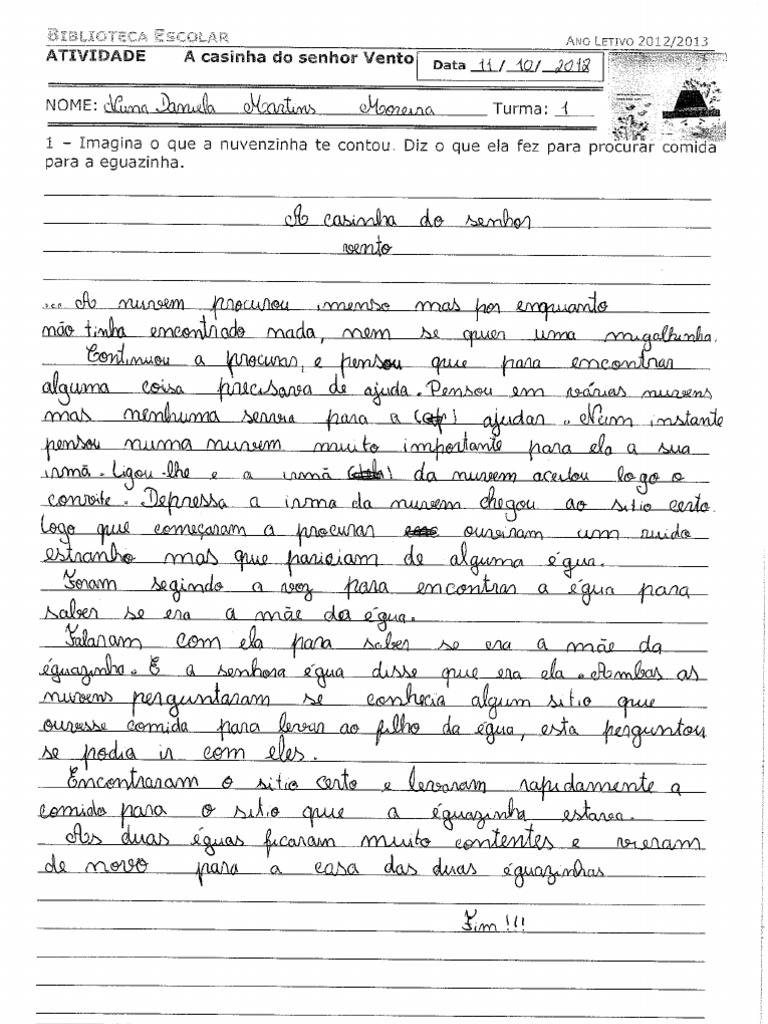 BIBLIOTECA ESCOLAR ANO LETIVO 2012/2013
ATIVIDADE A casinha do senhor Vento Data 11/10/2012
NOME: Nuna Daniela Martins Moreira Turma: 1
1 – Imagina o que a nuvenzinha te contou. Diz o que ela fez para procurar comida
para a eguazinha.
A casinha do senhor
vento
... A nuvem procurou imenso mas por enquanto
não tinha encontrado nada, nem se quer uma migalhinha.
Continuou a procurar, e pensou que para encontrar
alguma coisa precisava de ajuda. Pensou em várias nuvens
mas nenhuma servia para a ajudar. Num instante
pensou numa nuvem muito importante para ela a sua
irmã. Ligou-lhe e a irmã da nuvem aceitou logo o
convite. Depressa a irma da nuvem chegou ao sitio certo.
Logo que começaram a procurar ouviram um ruido
estranho mas que pariciam de alguma égua.
Foram segindo a voz para encontrar a égua para
saber se era a mãe da égua.
Falaram com ela para saber se era a mãe da
éguazinha. E a senhora égua disse que era ela. Ambas as
nuvens perguntaram se conhecia algum sitio que
ouvesse comida para levar ao filho da égua, esta perguntou
se podia ir com eles.
Encontraram o sitio certo e levaram rapidamente a
comida para o sitio que a éguazinha estava.
As duas éguas ficaram muito contentes e vieram
de novo para a casa das duas éguazinhas
Fim!!!